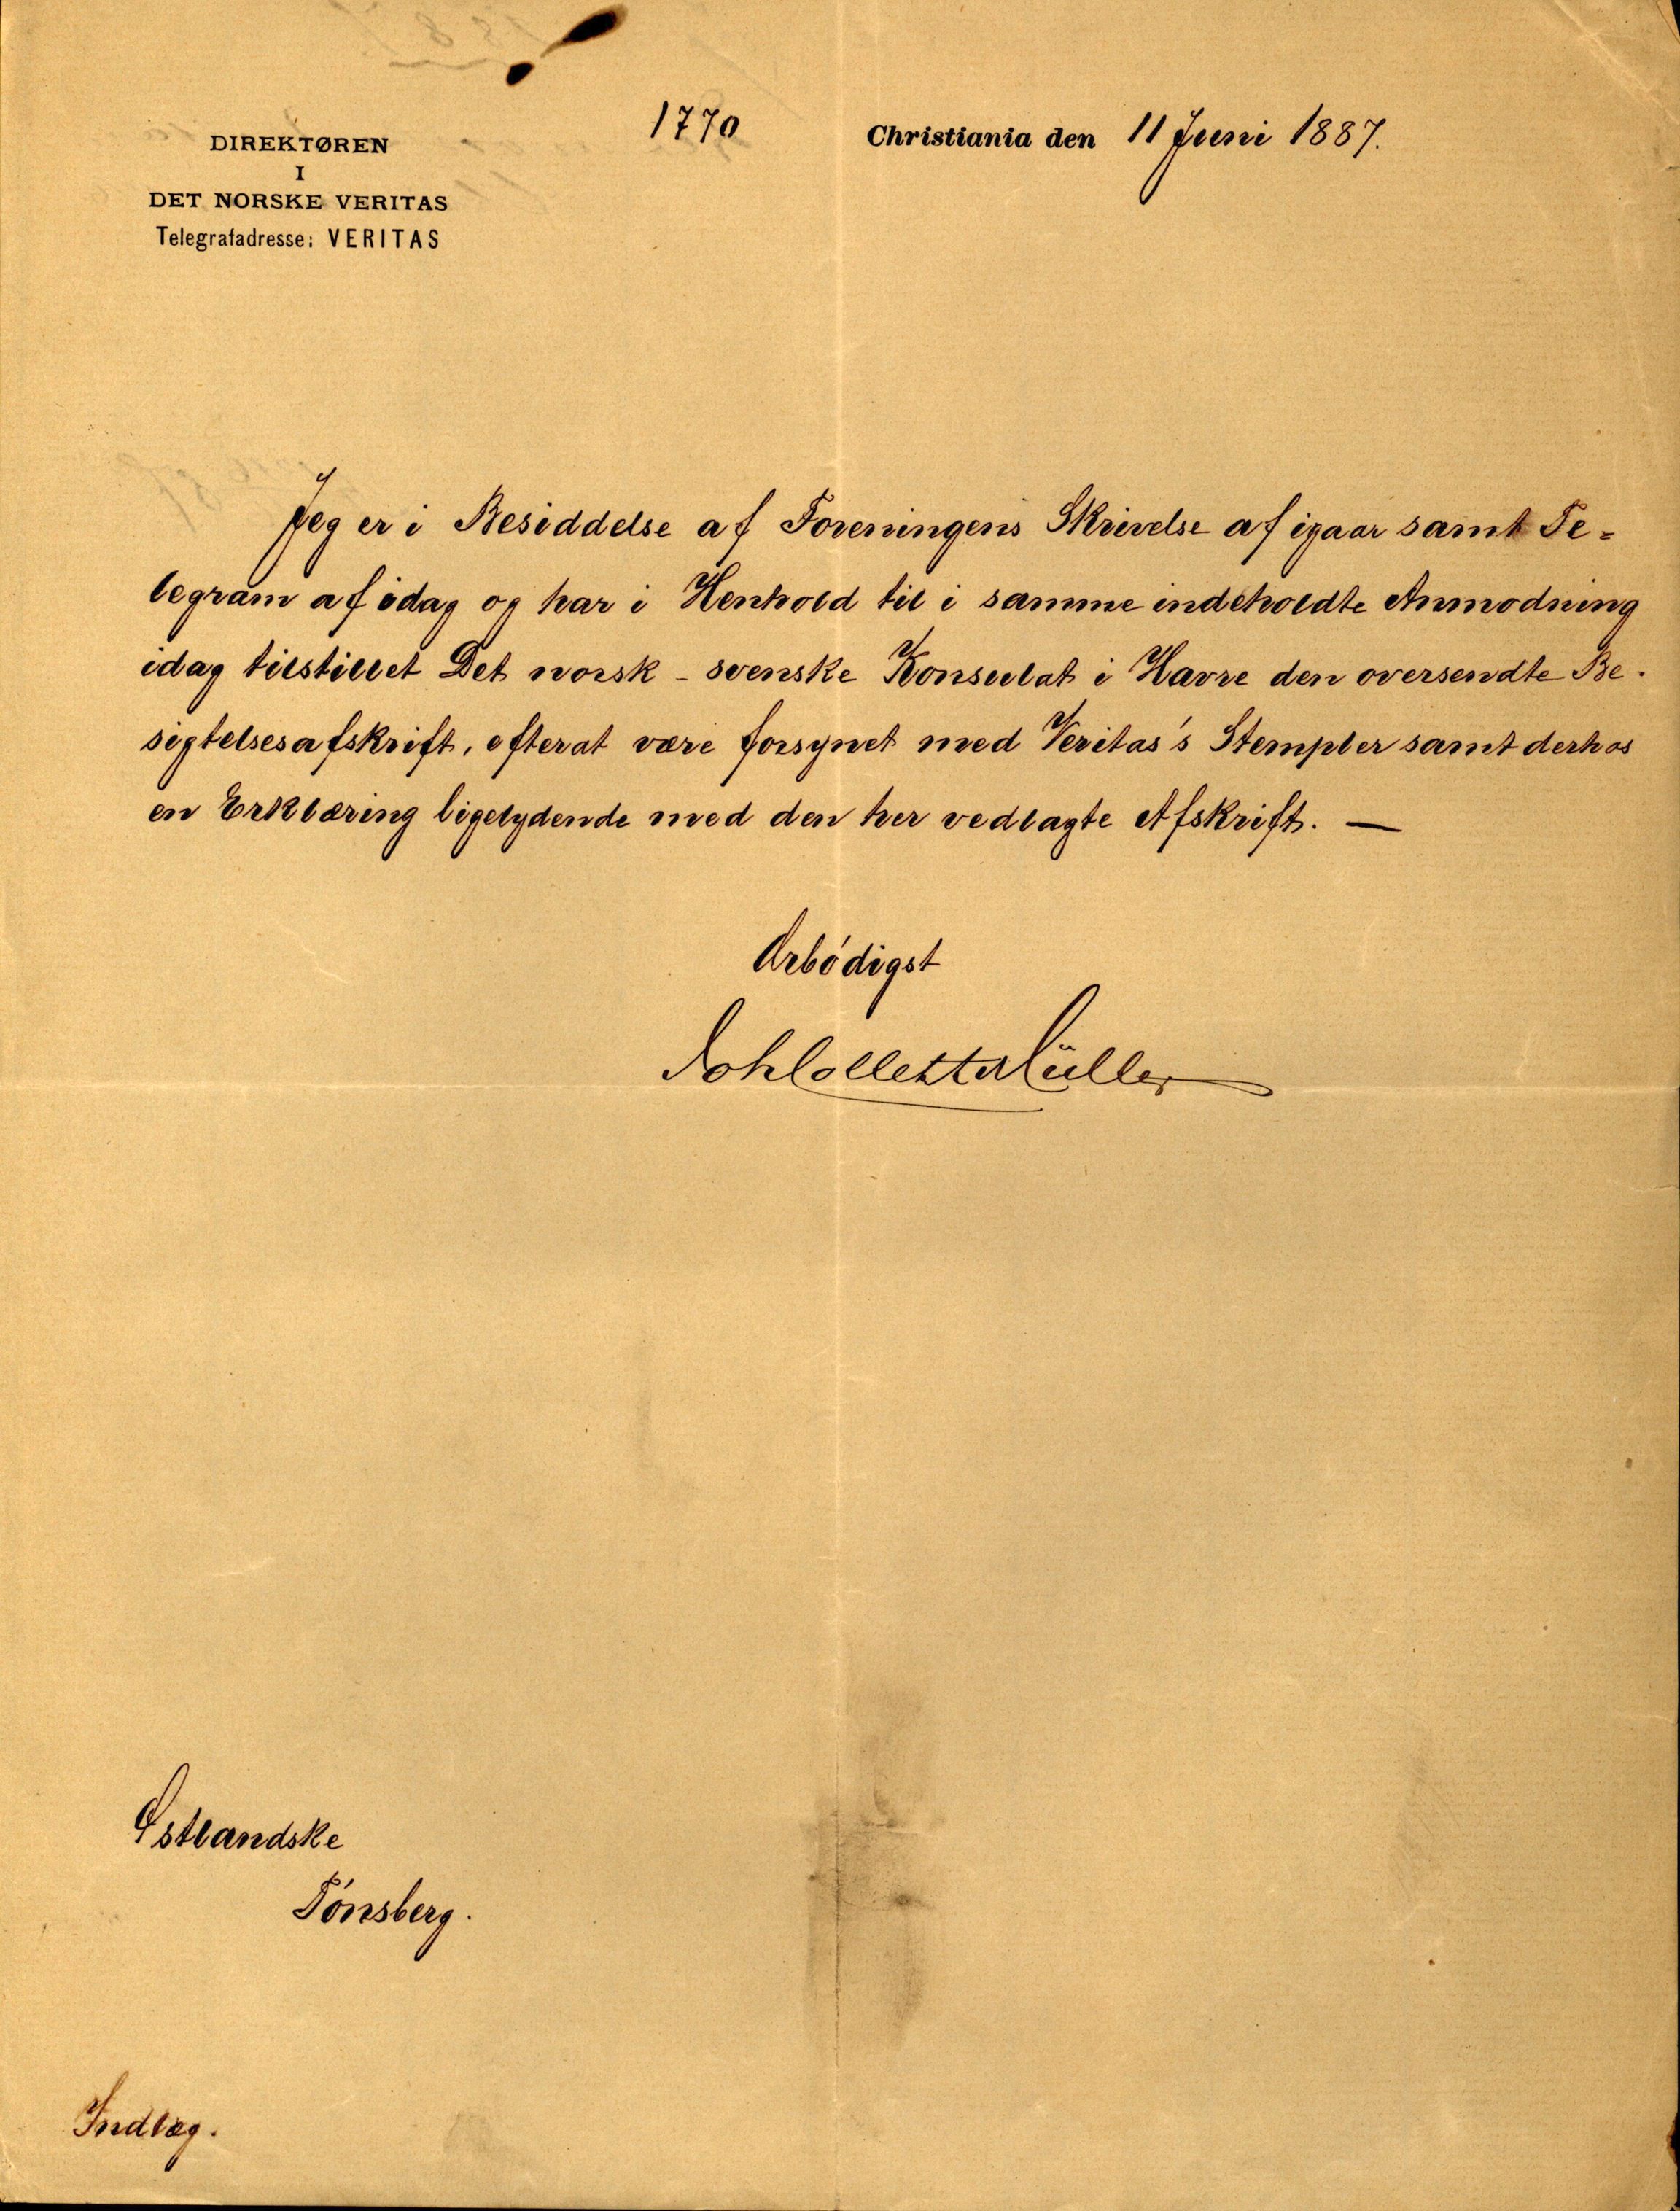 1770
DIREKTØREN
I
DET NORSKE VERITAS
Telegrafadresse: VERITAS
Christiania den 11 Juni 1887.
Jeg er i Besiddelse af Foreningens Skrivelse af igaar samt Te=
legram af idag og har i Henhold til i samme indeholdte Anmodning
idag tilstillet Det norsk-svenske Konsulat i Havre den oversendte Be-
sigtelsesafskrift, efterat være forsynet med Veritas's Stempler samt derhos
en Erklæring ligelydende med den her vedlagte Afskrift. —
Ærbódigst
Joh Collett Müller
Østlandske
Tónsberg.
Indlæg.